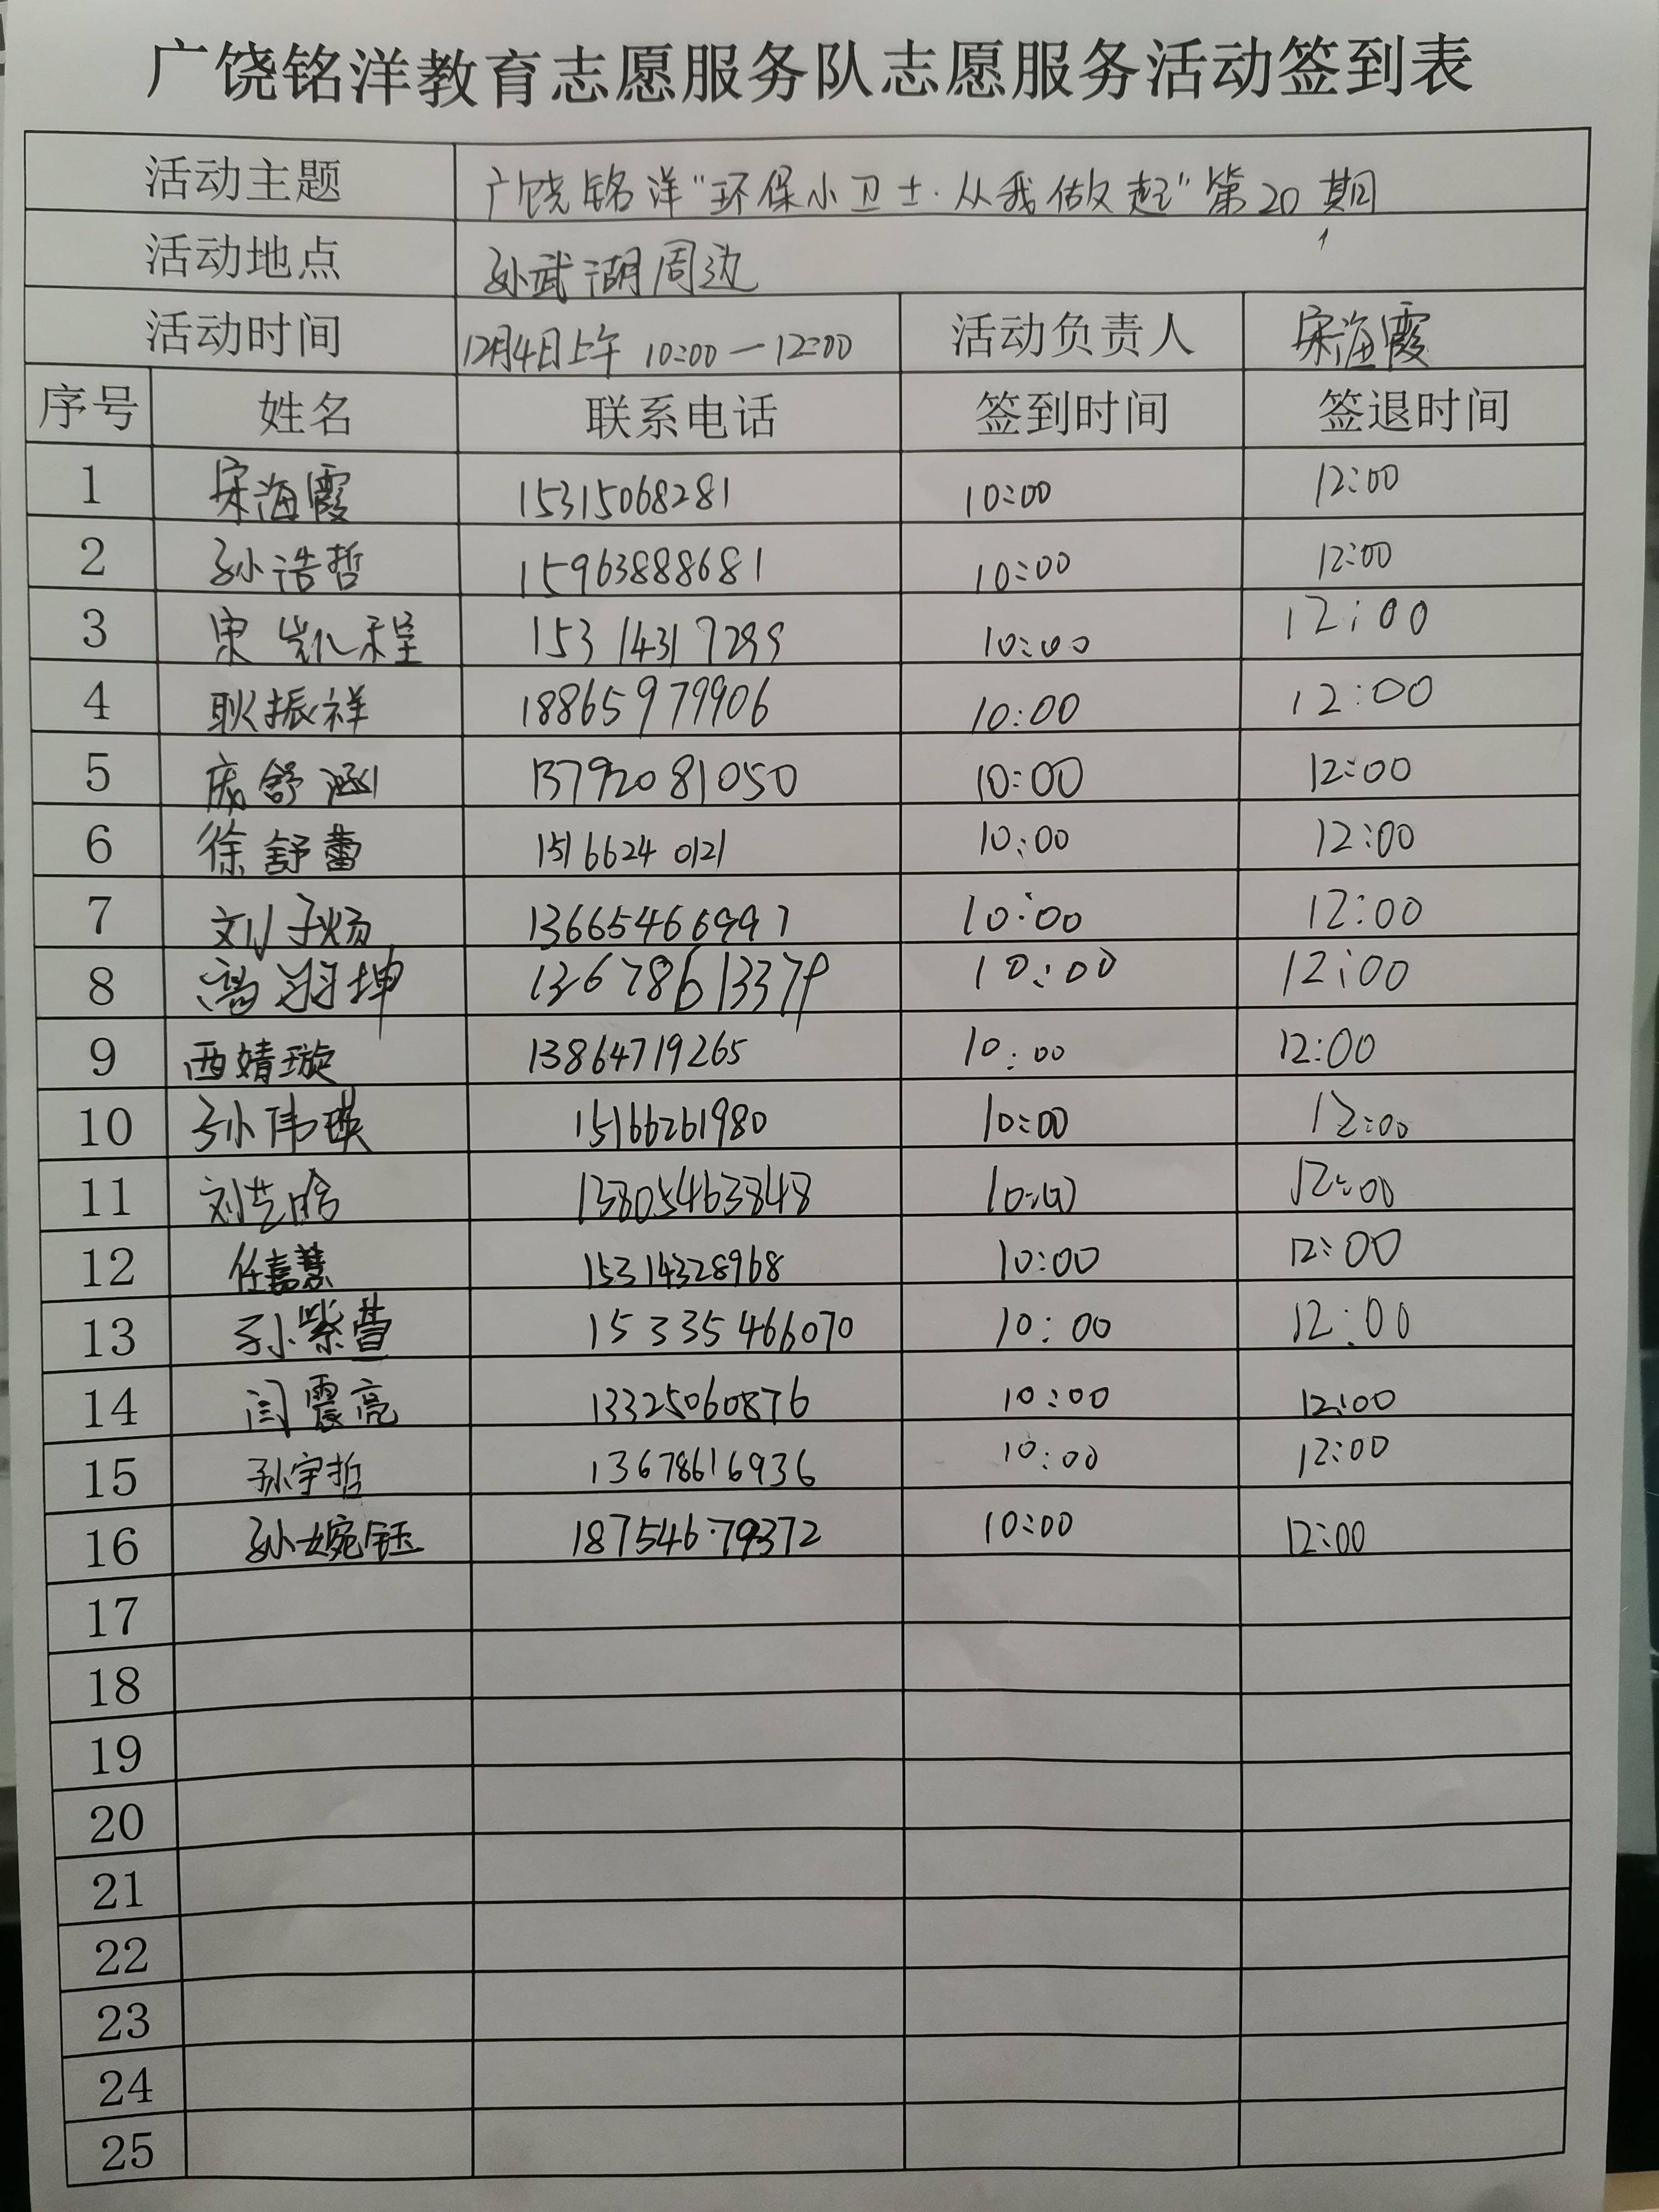 广饶铭洋教育志愿服务队志愿服务活动签到表
活动主题 广饶铭洋"环保小卫士·从我做起"第20期
活动地点 孙武湖周边
活动时间 12月4日上午 10:00—12:00 活动负责人 宋海霞
序号 姓名 联系电话 签到时间 签退时间
1 宋海霞 15315068281 10:00 12:00
2 孙浩哲 15963888681 10:00 12:00
3 宋凯程 15314317299 10:00 12:00
4 耿振祥 18865979906 10:00 12:00
5 庞舒涵 13792081050 10:00 12:00
6 徐舒蕾 15166240121 10:00 12:00
7 刘子炀 13665466997 10:00 12:00
8 高羽坤 13678613379 10:00 12:00
9 西婧璇 13864719265 10:00 12:00
10 孙伟瑛 15166261980 10:00 12:00
11 刘艺晗 13805463848 10:00 12:00
12 任嘉慧 15314328968 10:00 12:00
13 孙紫萱 15335466070 10:00 12:00
14 闫震亮 13325060876 10:00 12:00
15 孙宇哲 13678616936 10:00 12:00
16 孙婉钰 18754679372 10:00 12:00
17
18
19
20
21
22
23
24
25